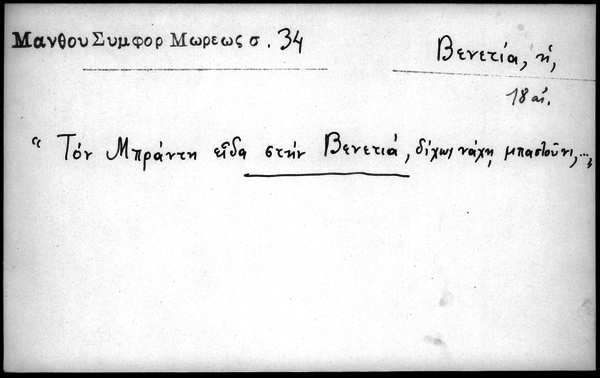 Μανθου Συμφορ Μωρεως σ. 34
Βενετία, ἡ,
18 αἰ.
“ Τόν Μπράντη εἶδα στήν Βενετιά, δίχως νάχη μπαστοῦνι,...,